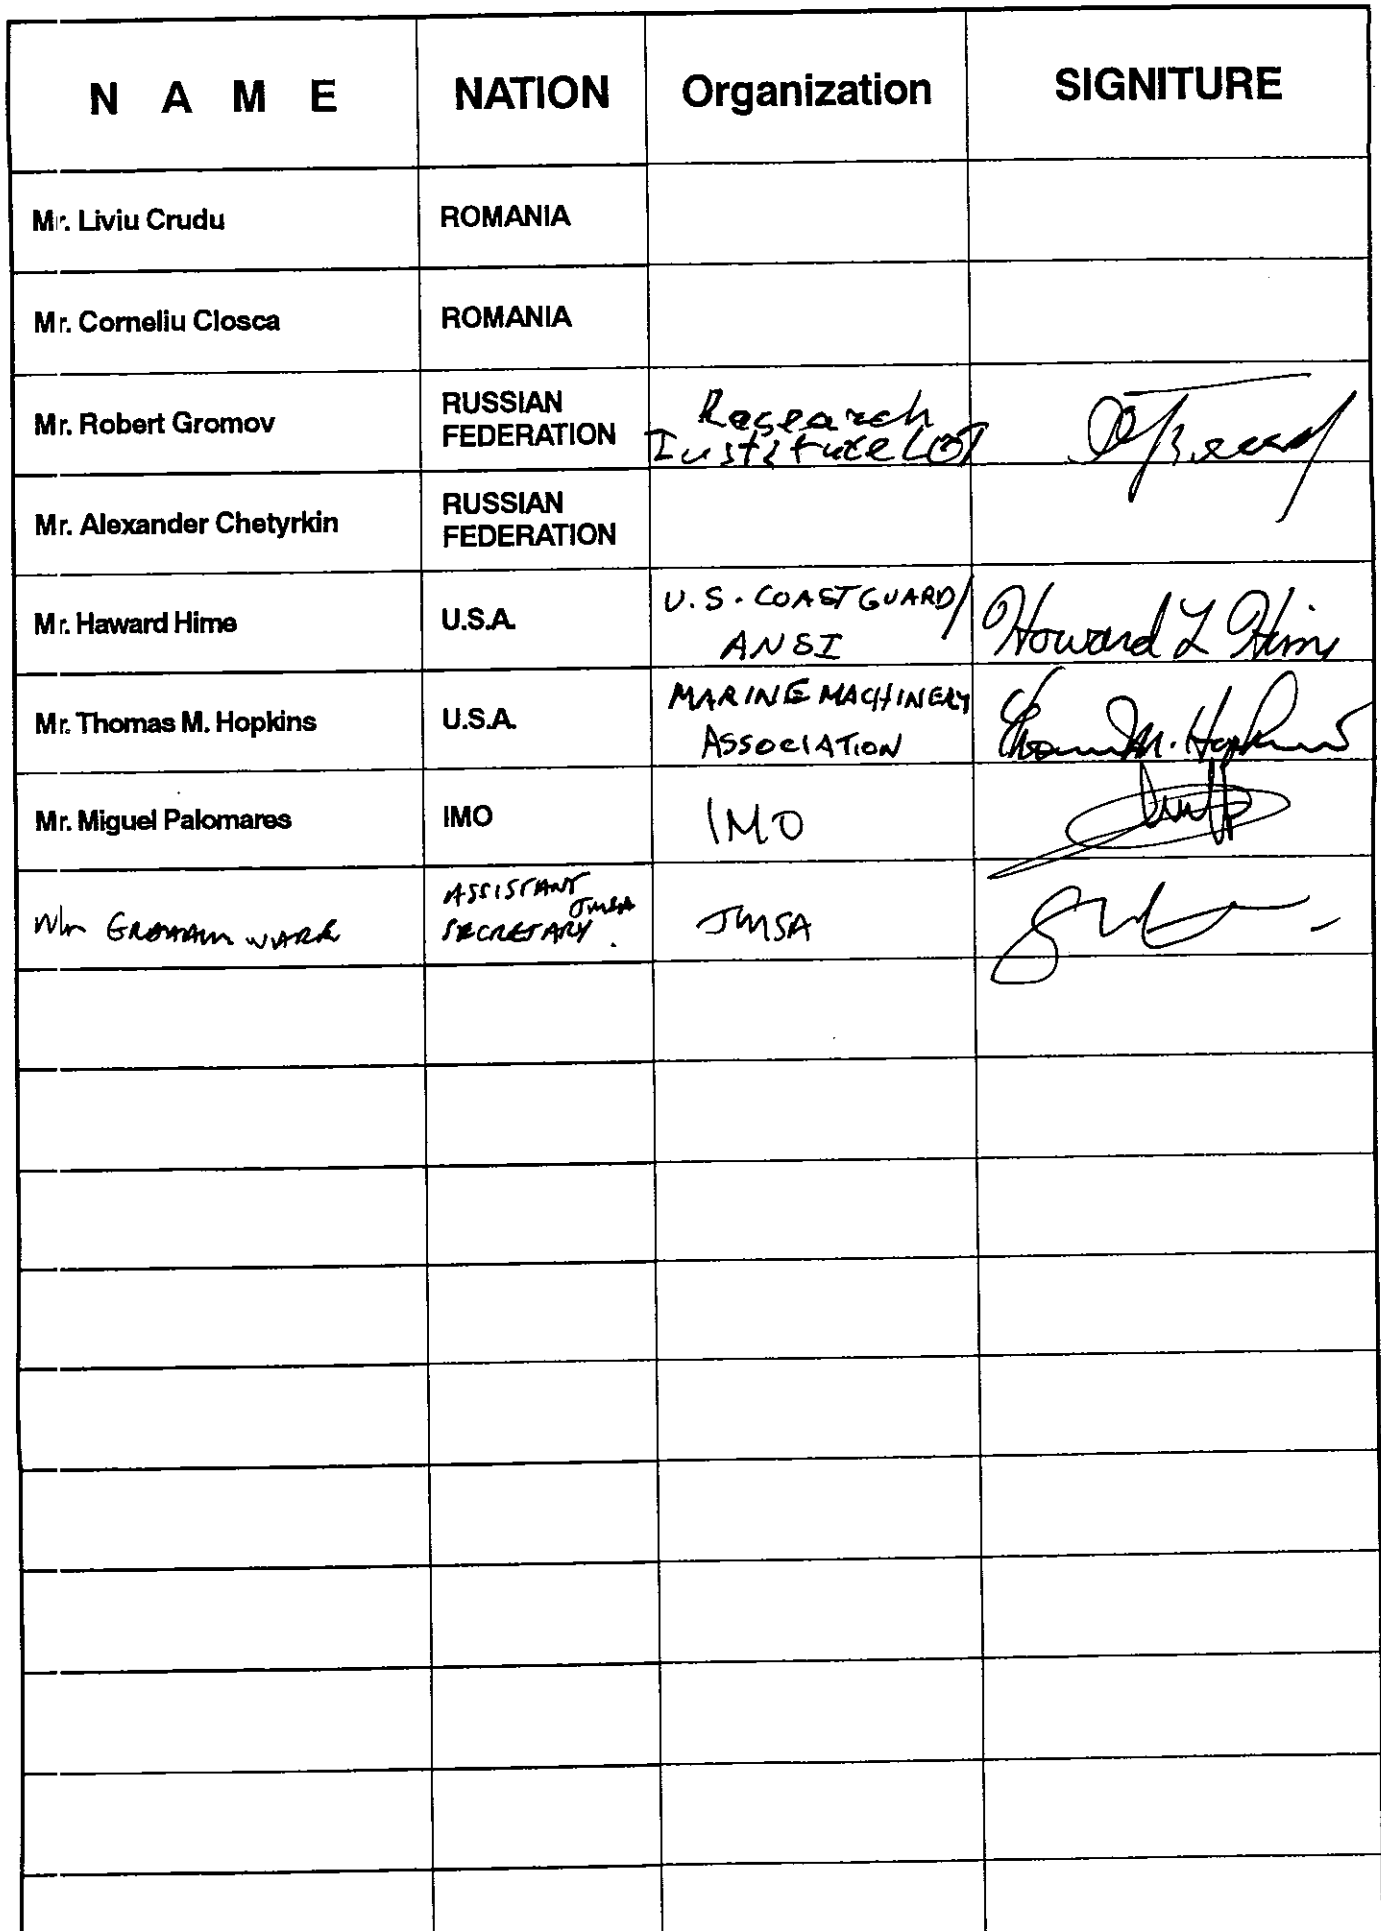 N A M E NATION Organization SIGNITURE
Mr. Liviu Crudu ROMANIA
Mr. Corneliu Closca ROMANIA
Mr. Robert Gromov RUSSIAN FEDERATION Research Institute LOT
Mr. Alexander Chetyrkin RUSSIAN FEDERATION
Mr. Haward Hime U.S.A. U.S. COAST GUARD/ ANSI Howard L Hime
Mr. Thomas M. Hopkins U.S.A. MARINE MACHINERY ASSOCIATION Thomas M. Hopkins
Mr. Miguel Palomares IMO IMO
GRAHAM WARK ASSISTANT JMSA SECRETARY. JMSA